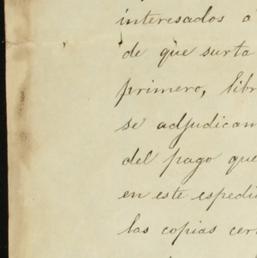 interesados a
de que surta
primero, libr
se adjudican
del pago que
en este espedi
las copias cer